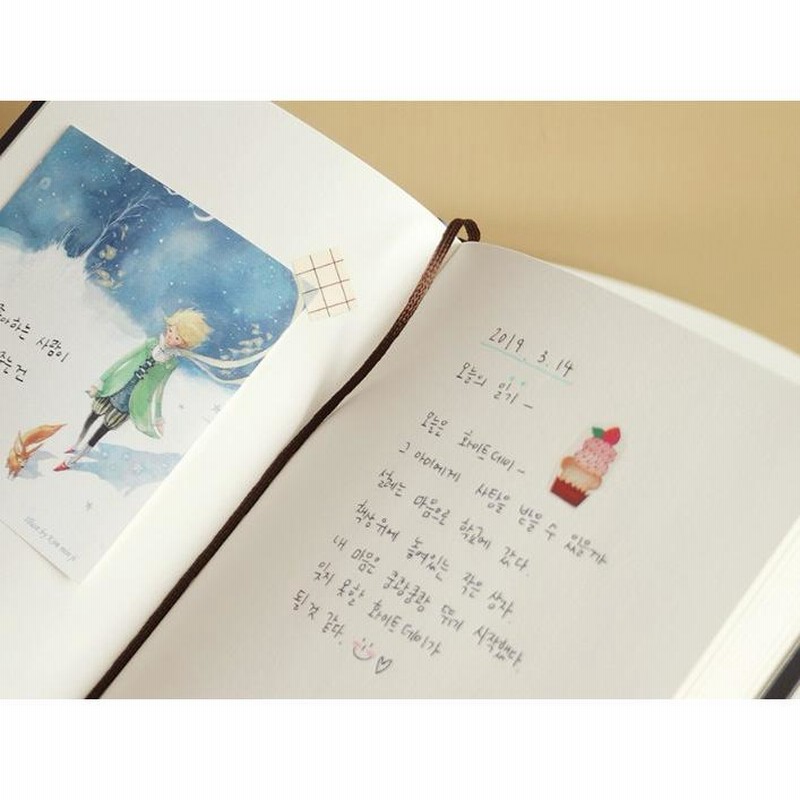 좋아하는 사람이
주는건
2019. 3. 14
오늘의 일기 -
오늘은 화이트데이 -
그 아이에게 사탕을 받을 수 있을까
설레는 마음으로 학교에 갔다.
책상위에 놓여있는 작은 상자.
내 마음은 쿵쾅쿵쾅 뛰기 시작했다.
잊지 못할 화이트데이가
될 것 같다.